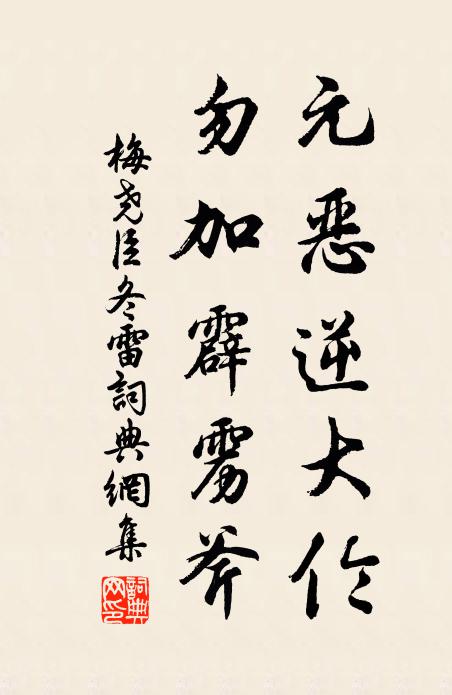 元恶逆大伦
勿加霹雳斧
梅尧臣冬雷詞典網集
詞典网印